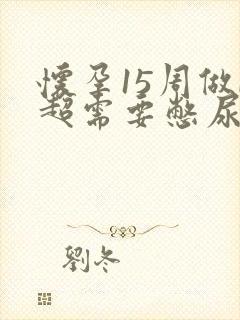 懷孕15周做
超需要憋尿
劉冬